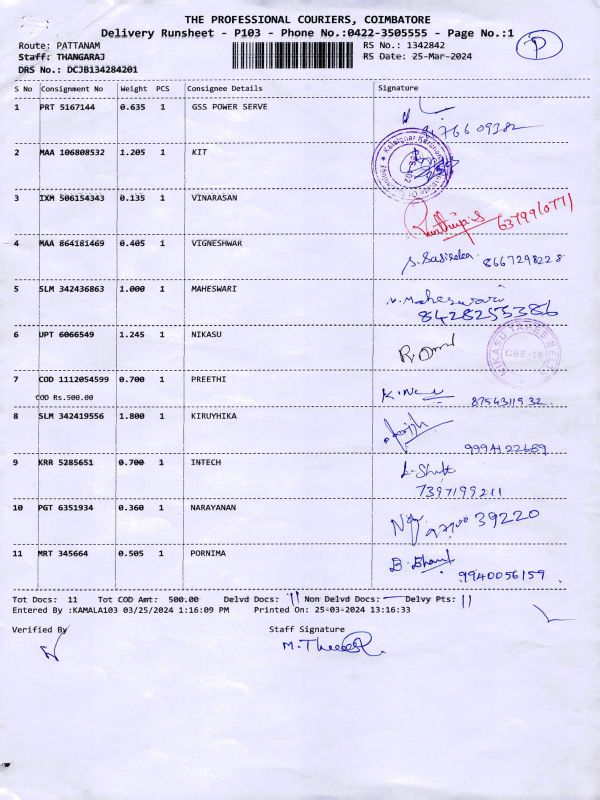 THE PROFESSIONAL COURIERS, COIMBATORE
Delivery Runsheet - P103 - Phone No.:0422-3505555 - Page No.:1
P
Route: PATTANAM RS No.: 1342842
Staff: THANGARAJ RS Date: 25-Mar-2024
DRS No.: DCJB134284201
S No Consignment No Weight PCS Consignee Details Signature
1 PRT 5167144 0.635 1 GSS POWER SERVE
2 MAA 106808532 1.205 1 KIT
3 IXM 506154343 0.135 1 VINARASAN
4 MAA 864181469 0.405 1 VIGNESHWAR
8667298228
5 SLM 342436863 1.000 1 MAHESWARI V. Maheswari
8428255386
6 UPT 6066549 1.245 1 NIKASU
NIKASU TAPES BELT
CBE-16
7 COD 1112054599 0.700 1 PREETHI
COD Rs.500.00 8754311932
8 SLM 342419556 1.800 1 KIRUYHIKA
9994122689
9 KRR 5285651 0.700 1 INTECH
7397199211
10 PGT 6351934 0.360 1 NARAYANAN
39220
11 MRT 345664 0.505 1 PORNIMA
9940056159
Tot Docs: 11 Tot COD Amt: 500.00 Delvd Docs: 11 Non Delvd Docs: — Delvy Pts: 11
Entered By :KAMALA103 03/25/2024 1:16:09 PM Printed On: 25-03-2024 13:16:33
Verified By Staff Signature